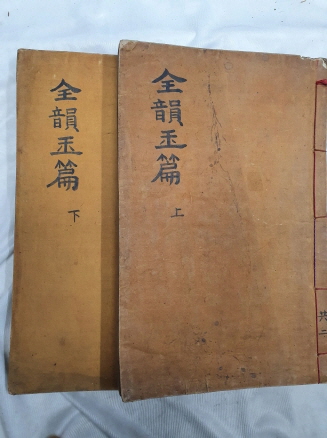 全韻玉篇
上
共二
全韻玉篇
下